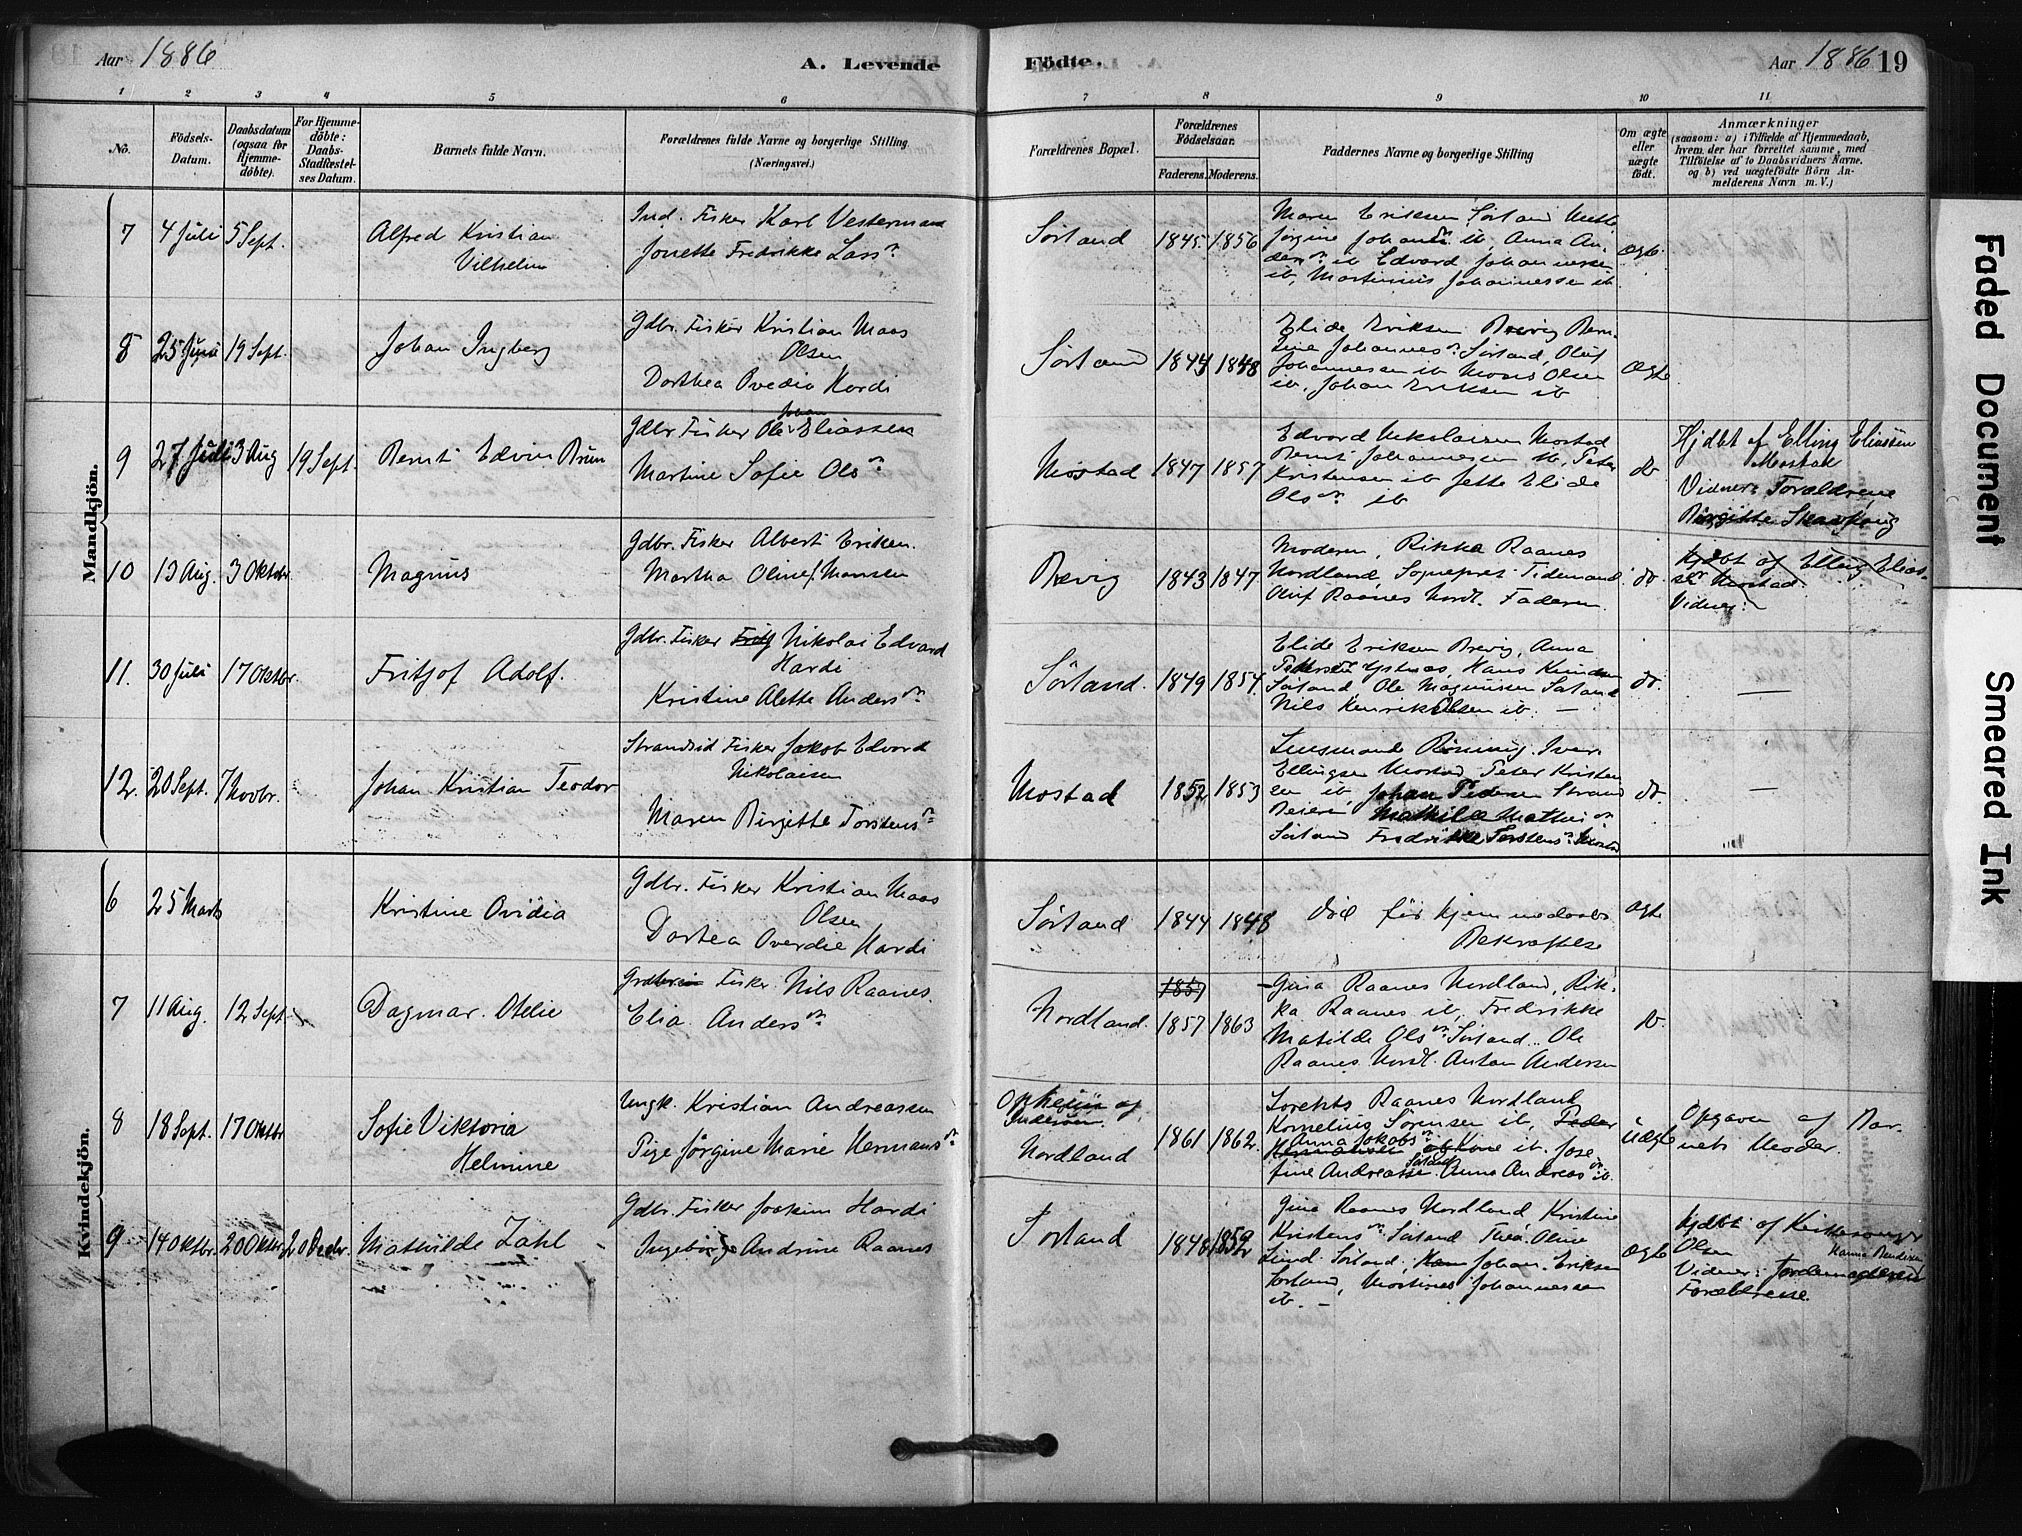 Aar 1886
A. Levende
Födte.
Aar 1886 19
1 2 3 4 5 6 7 8 9 10 11
No.
Födsels-
Datum.
Daabsdatum
(ogsaa for
Hjemme-
döbte).
For Hjemme-
döbte:
Daabs-
Stadfæstel-
ses Datum.
Barnets fulde Navn.
Forældrenes fulde Navne og borgerlige Stilling
(Næringsvei.)
Forældrenes Bopæl.
Forældrenes
Födselsaar.
Faderens. Moderens.
Faddernes Navne og borgerlige Stilling
Om ægte
eller
uægte
født.
Anmærkninger
(saasom: a) i Tilfælde af Hjemmedaab,
hvem der har forrettet samme, med
Tilföielse af to Daabsvidners Navne.
og b) ved uægtefödte Börn An-
melderens Navn m. V.)
Mandkjön.
7 4 Juli 5 Sept.
Alfred Kristian
Vilhelm
Ind. Fisker Karl Vestermand
Jonette Fredrikke Lars n
Sörland 1845 1856
Maren Eriksen Sörland Mette
Jörgine Johans n ib, Anna An-
ders n ib Edvard Johannessen
ib, Martinius Johannessen ib
Ægte
8 25 Juni 19 Sept.
Johan Ingberg
Gdbr. Fisker Kristian Maas
Olsen
Dorthea Ovedia Hardi
Sörland 1844 1848
Elide Eriksen Brevig Bern-
tine Johannes n Sörland, Oluf
Johannessen ib Mons Olsen
ib, Johan Eriksen ib
Ægte
9 27 Juli 3 Aug 19 Sept.
Bernt Edvin Brun
Gdbr Fisker Ole Johan Eliassen
Martine Sofie Ols n
Mostad 1847 1857
Edvard Nikolaisen Mostad
Bernt Johannessen ib, Peter
Kristensen ib Jette Elide
Ols n ib
do
Hjdbt af Elling Eliassen
Mostad
Vidner: Forældrene
Birgitte
10 13 Aug. 3 Oktbr.
Magnus
Gdbr. Fisker Albert Eriksen.
Martha Oline Hansen
Brevig 1843 1847
Moderen, Rikka Raanes
Nordland, Sognepræst Tidemand
Oluf Raanes Nordl. Faderen.
do.
Hjdbt af Elling Elias-
sen Mostad.
Vidner:
11. 30 Juli 17 Oktbr.
Fritjof Adolf.
Gdbr. Fisker Nikolai Edvard
Hardi
Kristine Alette Anders n
Sörland. 1849 1854
Elide Eriksen Brevig, Anna
Peders n Ystnæs, Hans Knudsen
Sörland, Ole Magnussen Sörland
Nils Henrik Olsen ib. —
do. —
12. 20 Sept. 7 Novbr.
Johan Kristian Teodor
Strandsid Fisker Jakob Edvard
Nikolaisen
Maren Birgitte Torstens n
Mostad 1852 1853
Lensmand Röning. Iver
Ellingsen Mostad Peter Kristen
sen ib, Johan Pedersen Strand
Beieren Mathilde Mathis n
Sörland Fredrikke Torstens n Mostad
do. —
Kvindekjön.
6 25 Marts
Kristine Ovidia
Gdbr. Fisker Kristian Maas
Olsen
Dortea Overdie Hardi
Sörland 1844 1848
död för Hjemmedaabs
Bekræftelse
Ægte
7 11 Aug. 12 Sept.
Dagmar. Otelie
Fisker Nils Raanes.
Elia. Anders n
Nordland. 1857
1857 1863
Gina Raanes Nordland, Rik-
ka Raanes ib, Fredrikke
Matilde Ols n Sörland. Ole
Raanes Nordl. Anton Andersen
do.
8 18 Sept. 17 Oktbr
Sofie Viktoria
Helmine
Ungk. Kristian Andreassen
Pige Jörgine Marie Hermans n
Nordland 1861 1862.
Raanes Nordland
Kornelius Sörensen ib, Peder
Anna Jakobs n
Hermansen og Kone ib. Jose
fine Andreassen Sörland Anna Andreas n ib.
Uægte
Opgaven af Bar-
nets Moder.
9 14 Oktbr. 20 Oktbr 20 Decbr.
Mathilde Zahl
Gdbr. Fisker Joakim Hardi
Ingeborg Andrine Raanes
Sorland 1848 1852
Gina Raanes Nordland Kristine
Kristens n Sörland Thea Oline
Lind. Sörland, Johan Eriksen
Sorland, Martines Johannessen
ib. —
Ægte
Hjdbt af Kirkesanger
Olsen
Hanna Bendiksen
Vidner: Jordemoderen
Forældrene.
Faded Document
Smeared Ink